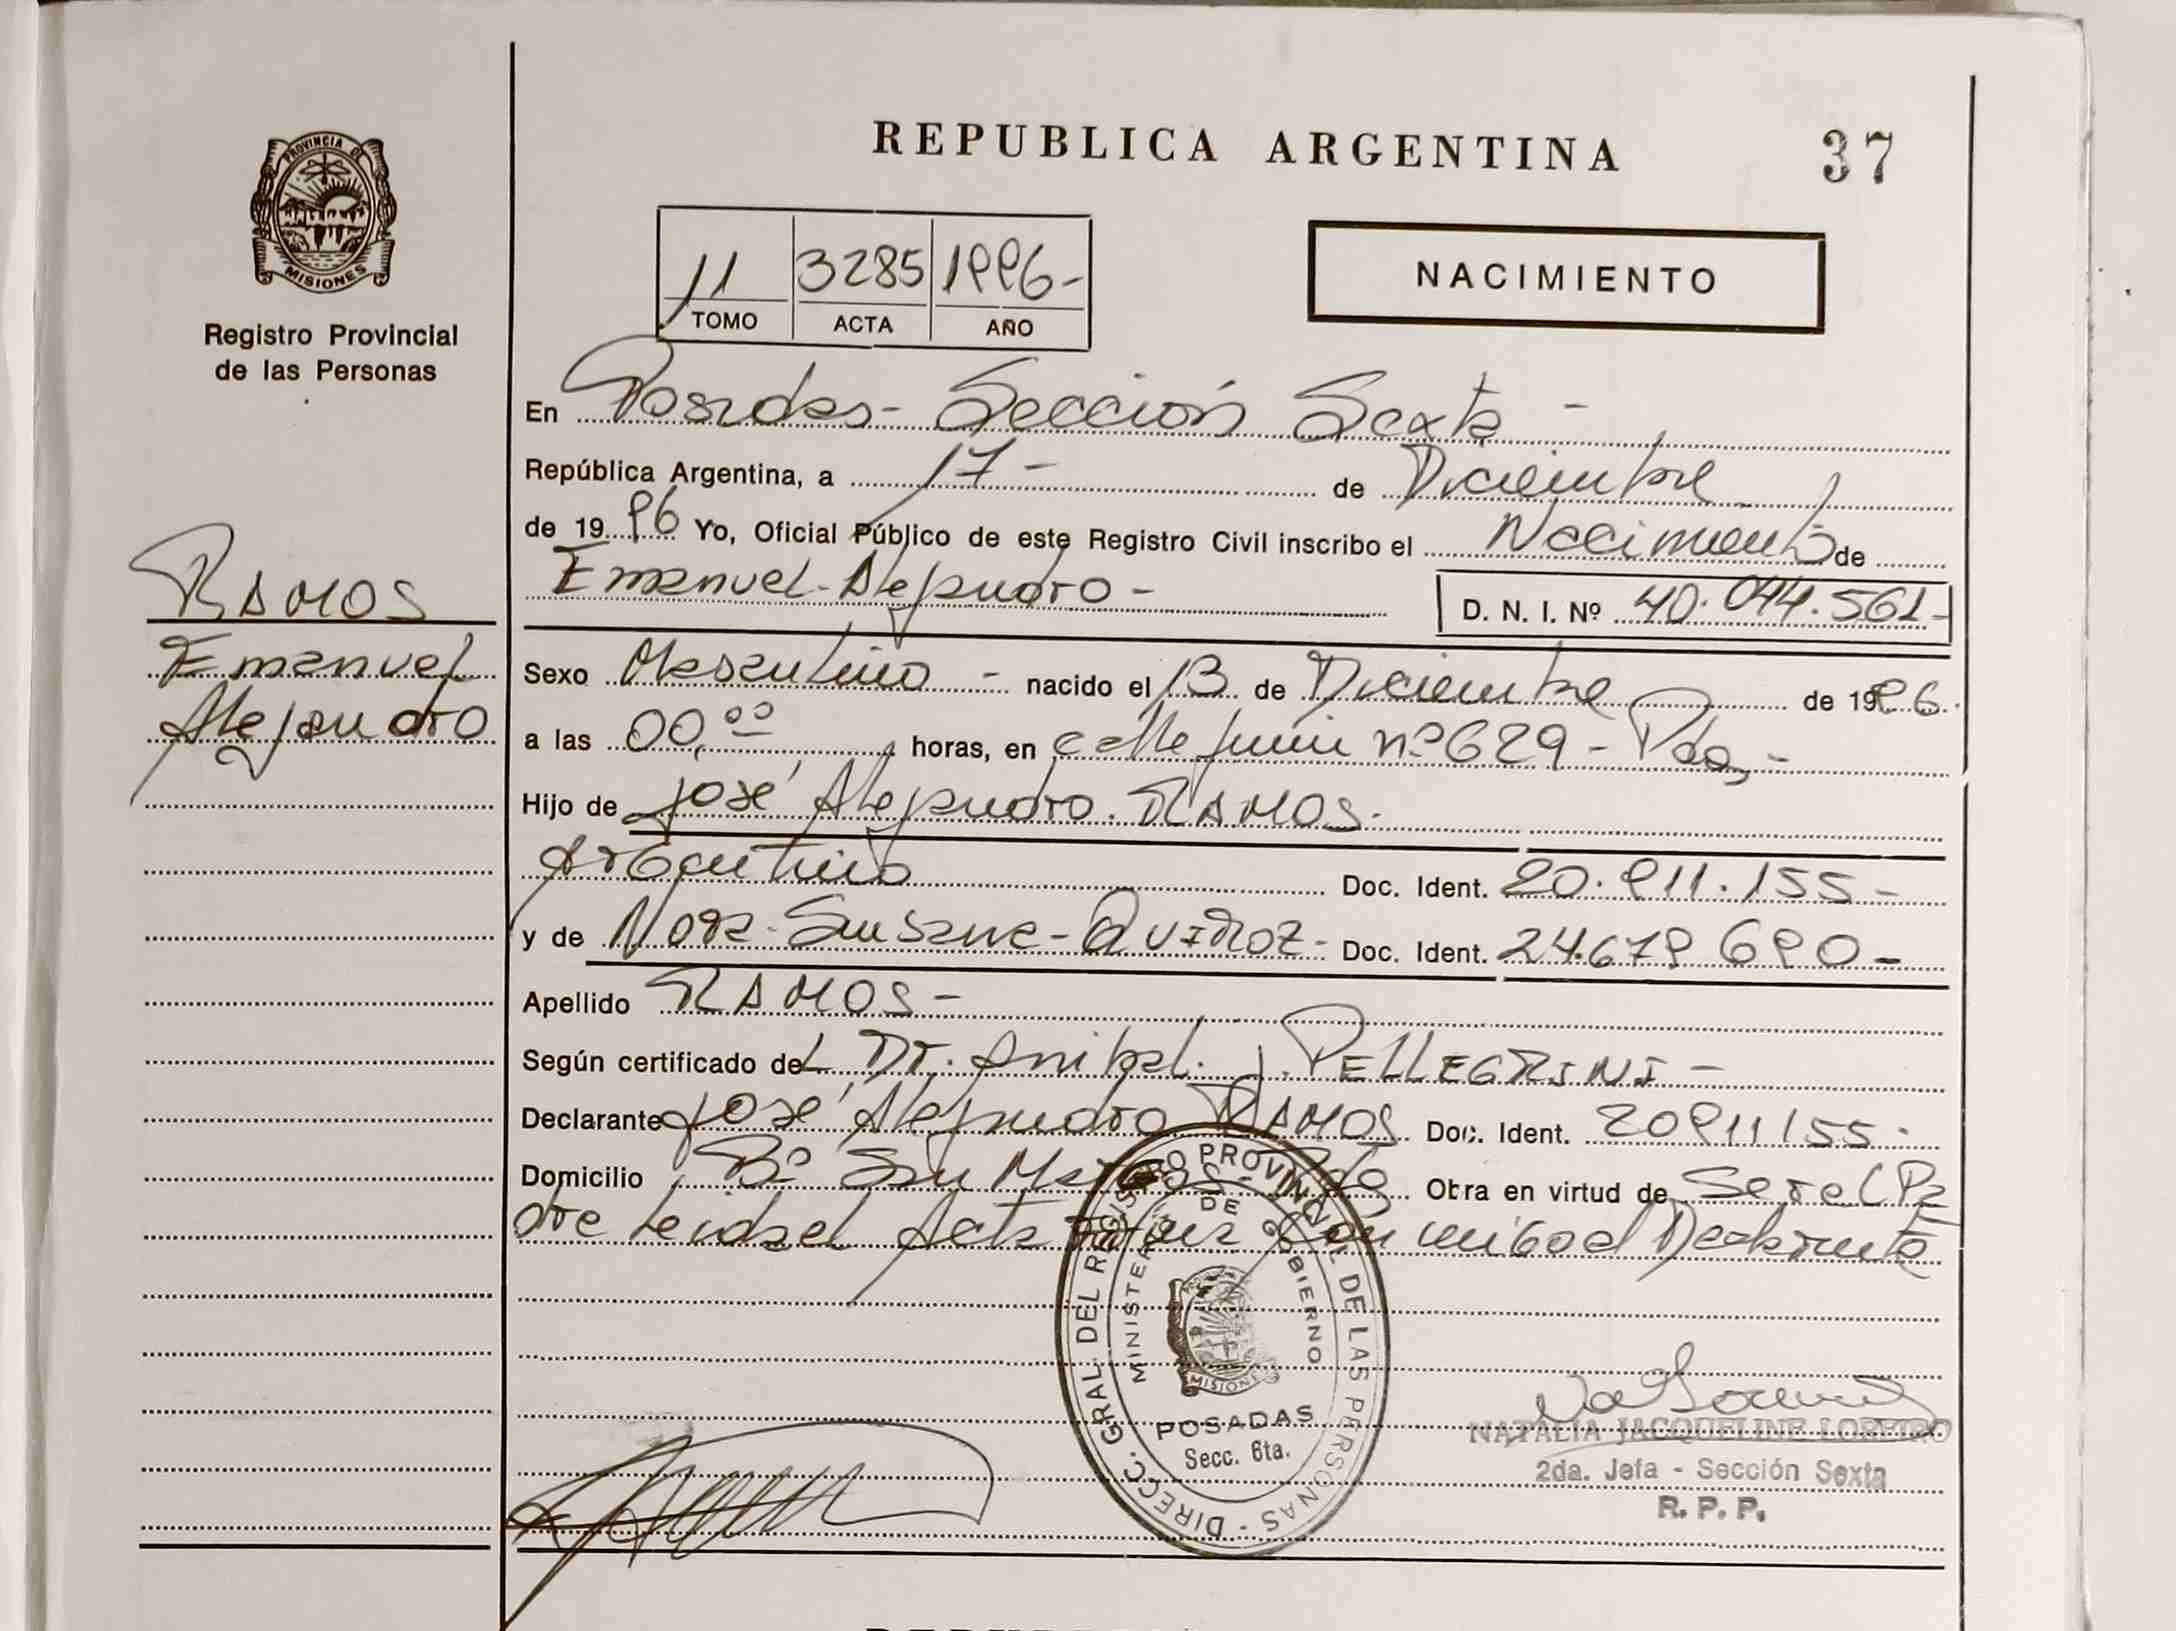 REPUBLICA ARGENTINA
37
PROVINCIA DE
MISIONES
Registro Provincial
de las Personas
11 3285 1996-
TOMO ACTA AÑO
NACIMIENTO
En Posadas- Sección Sexta -
República Argentina, a 17- de Diciembre
de 1996 Yo, Oficial Público de este Registro Civil inscribo el Nacimiento de
Emanuel-Alejandro- D. N. I. Nº 40.044.561-
RAMOS
Emanuel
Alejandro
Sexo Masculino - nacido el 13 de Diciembre de 1996.
a las 00,00 horas, en calle Junin nº 629- Pdas,-
Hijo de José Alejandro. RAMOS.
Argentino Doc. Ident. 20.911.155-
y de Nora-Susana-QUIROZ- Doc. Ident. 24.679 690-
Apellido RAMOS-
Según certificado del Dr. Anibal. J. PELLEGRINI-
Declarante José Alejandro RAMOS Doc. Ident. 20911155-
Domicilio Bº San Obra en virtud de Ser el Pa
dre Leida el Acta Conmigo el Declarante
DIRECC. GRAL. DEL REGISTRO PROVINCIAL DE LAS PERSONAS -
MINISTERIO DE GOBIERNO
MISIONES
POSADAS
Secc. 6ta.
NATALIA JACQUELINE LOREIRO
2da. Jefa - Sección Sexta
R. P. P.